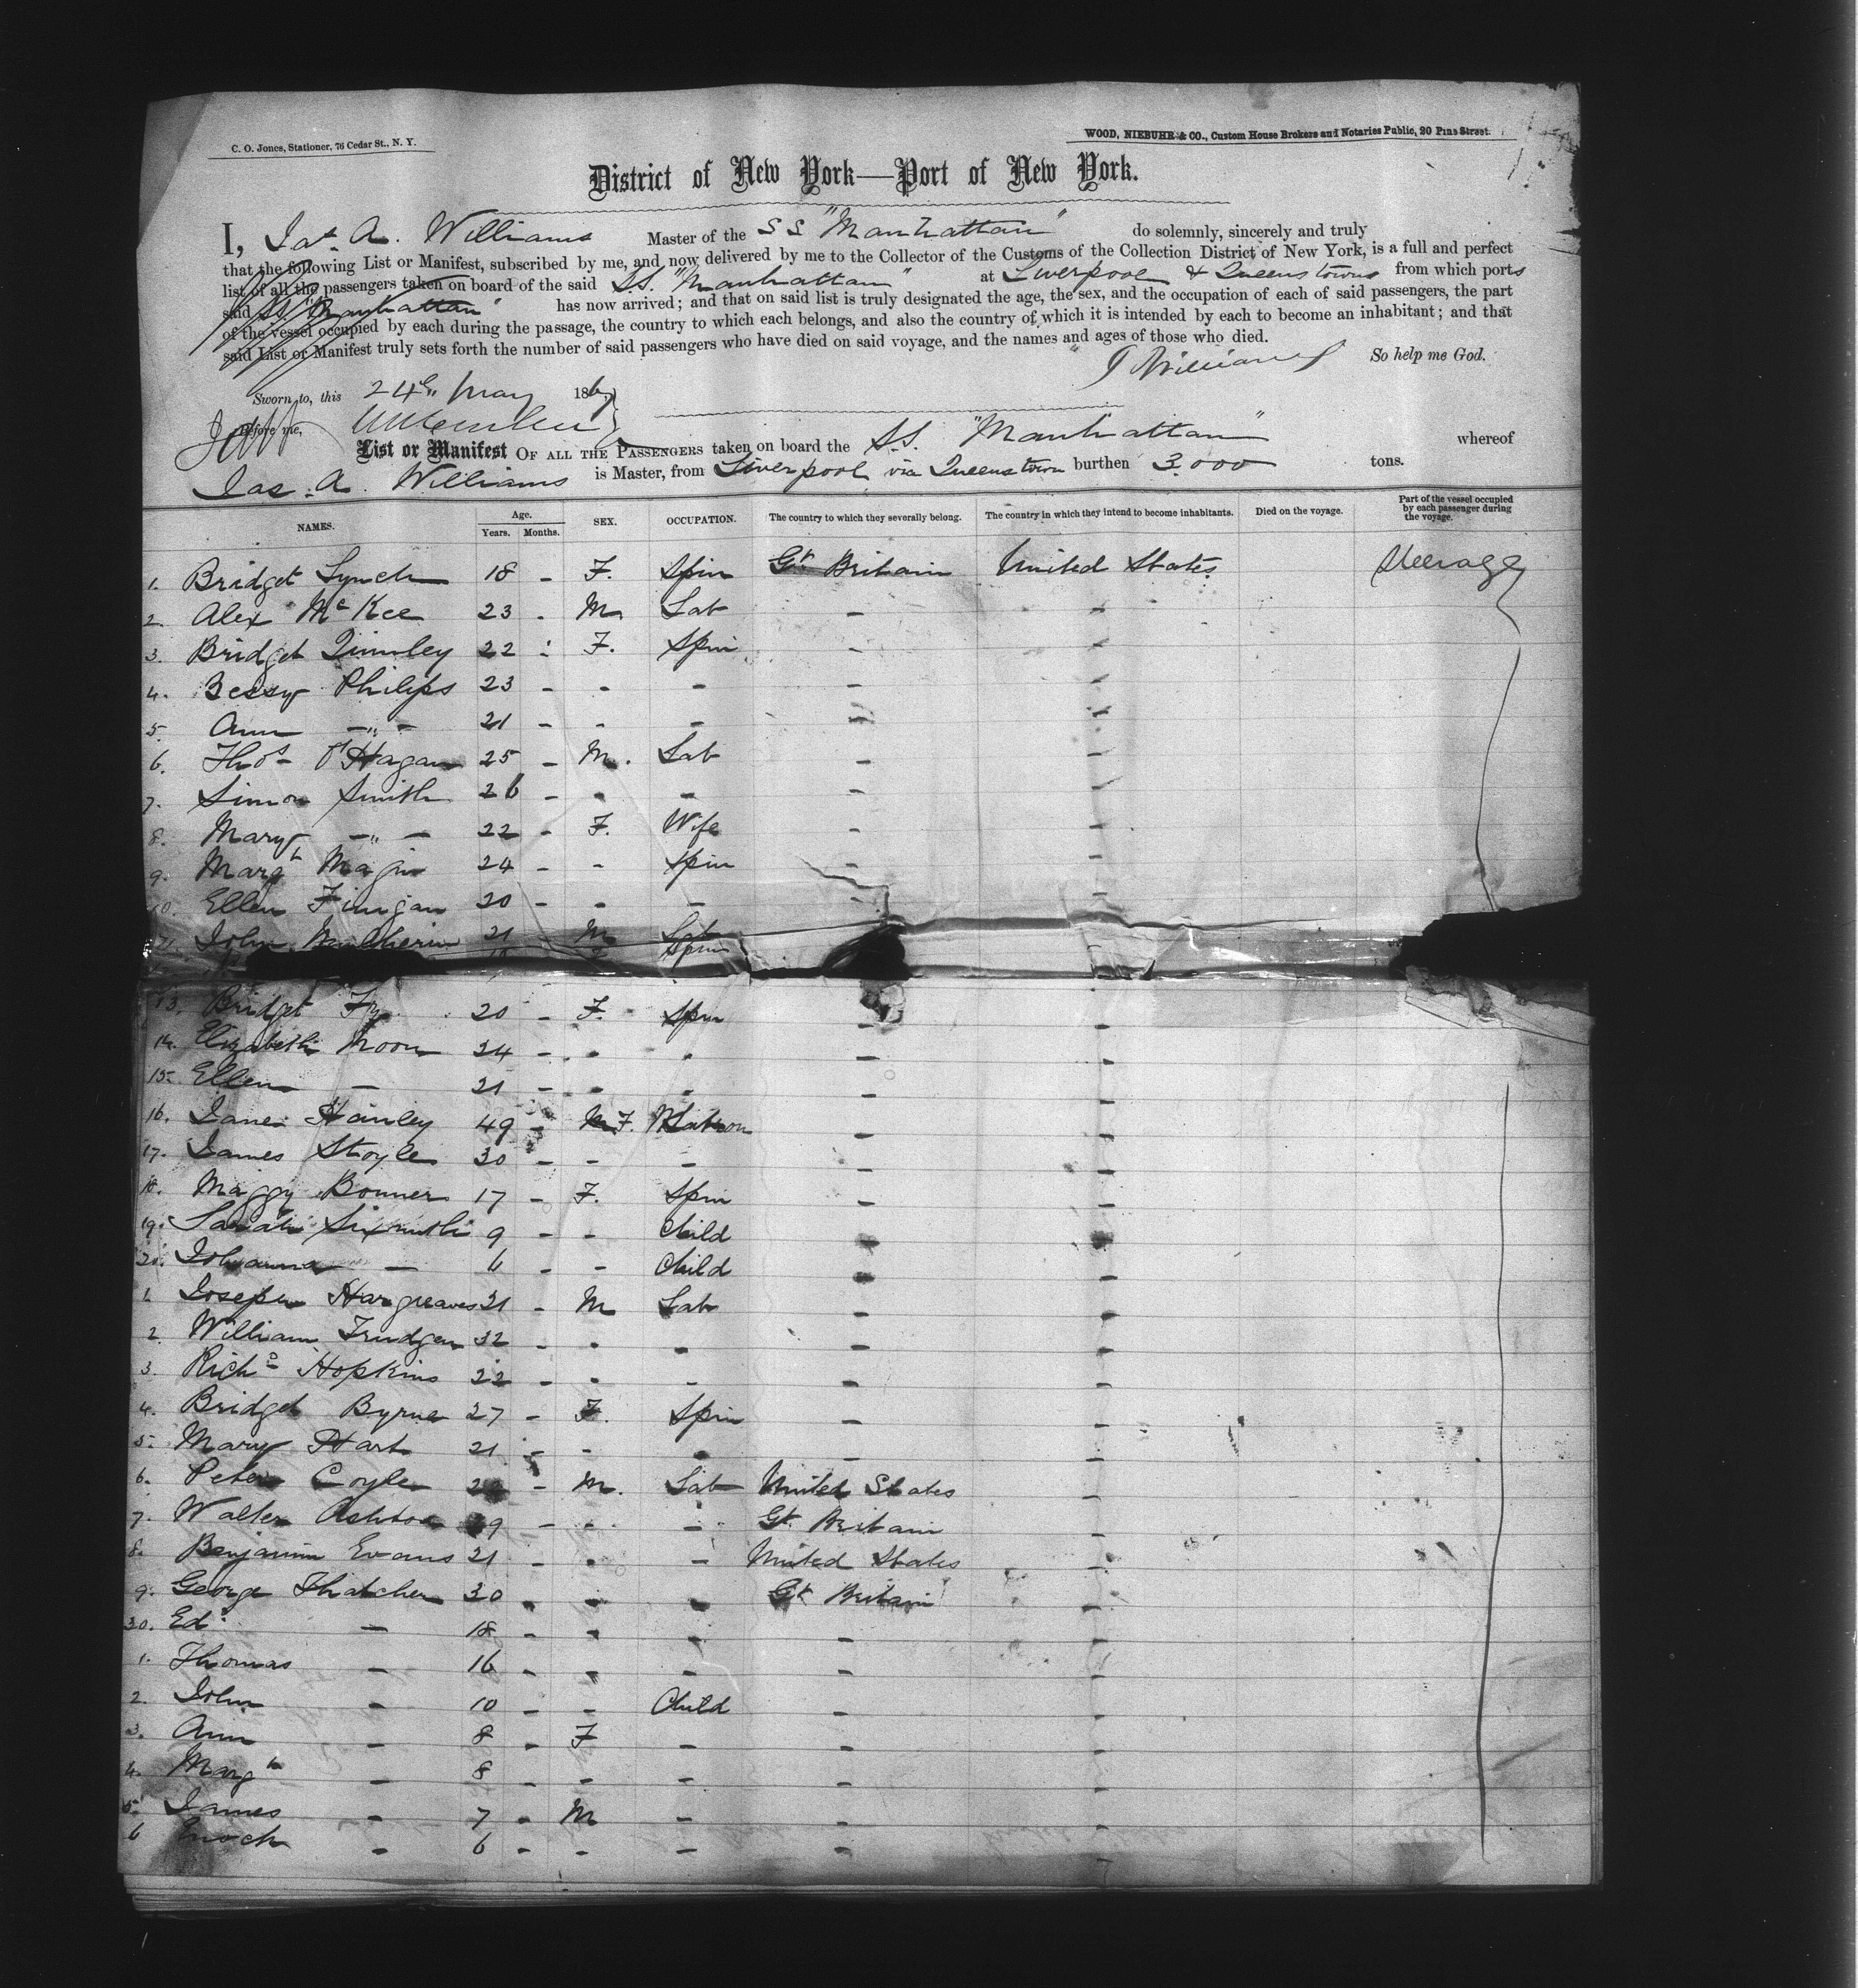 C. O. Jones, Stationer, 76 Cedar St., N. Y.
WOOD, NIEBUHR & CO., Custom House Brokers and Notaries Public, 20 Pine Street.
District of New York—Port of New York.
I, Jas. A. Williams Master of the S S "Manhattan" do solemnly, sincerely and truly
that the following List or Manifest, subscribed by me, and now delivered by me to the Collector of the Customs of the Collection District of New York, is a full and perfect
list of all the passengers taken on board of the said SS. "Manhattan" at Liverpool & Queenstown from which ports
said SS "Manhattan" has now arrived; and that on said list is truly designated the age, the sex, and the occupation of each of said passengers, the part
of the vessel occupied by each during the passage, the country to which each belongs, and also the country of which it is intended by each to become an inhabitant; and that
said List or Manifest truly sets forth the number of said passengers who have died on said voyage, and the names and ages of those who died.
J Williams So help me God.
Sworn to, this 24th May 1867
Before me,
List or Manifest OF ALL THE PASSENGERS taken on board the SS. "Manhattan" whereof
Jas. A. Williams is Master, from Liverpool via Queenstown burthen 3.000 tons.
NAMES. Age. Years. Months. SEX. OCCUPATION. The country to which they severally belong. The country in which they intend to become inhabitants. Died on the voyage. Part of the vessel occupied by each passenger during the voyage.
1. Bridget Lynch 18 - F. Spin Gt Britain United States Steerage
2. Alex McKee 23 - M. Lab - -
3. Bridget 22 - F. Spin - -
4. Bessy Philips 23 - - - - -
5. Ann -"- 21 - - - - -
6. Thos O'Hagan 25 - M. Lab - -
7. Simon Smith 26 - - - - -
8. Mary -"- 22 - F. Wife - -
9. Margt Magin 24 - - Spin - -
10. Ellen Finigan 20 - - - - -
11. John 21 M Lab
Spin
13. Bridget 20 - F. Spin - -
14. Elizabeth Moon 24 - - - - -
15. Ellen - 21 - - - - -
16. Jane Hanley 49 - F. Matron - -
17. James Stoyle 30 - - - - -
18. Maggy Bonner 17 - F. Spin - -
19. Sarah 9 - - Child - -
20. Johanna - 6 - - Child - -
1. Joseph Hargreaves 21 - M Lab - -
2. William Trudgen 32 - - - - -
3. Richd Hopkins 22 - - - - -
4. Bridget Byrne 27 - F. Spin - -
5. Mary Hart 21 - - - - -
6. Peter Coyle - M. Lab United States -
7. Walter Ashton - - - Gt Britain -
8. Benjamin Evans 21 - - - United States -
9. George Thatcher 30 - - - Gt Britain -
30. Ed. - 18 - - - - -
1. Thomas - 16 - - - - -
2. John - 10 - - Child - -
3. Ann - 8 - F - - -
4. Margt - 8 - - - - -
5. James - 7 - M - - -
6 Enoch - 6 - - - - -